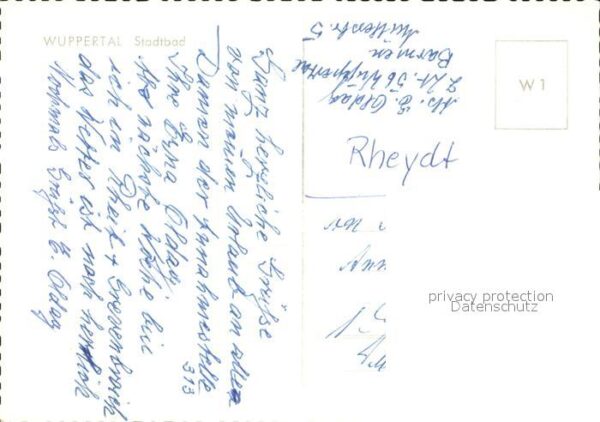 WUPPERTAL Stadtbad
Ganz herzliche Grüße
von meinem Urlaub an alle
Damen der Annahmestelle
313
Ihre Erna Oldag
Ab nächste Woche bin
ich in Rheit + Grevenbroich
das Wetter ist noch herrlich
Nochmals Grüße E. Oldag
Abs. E. Oldag
z. Zt. 56 Wuppertal
Barmen
5
W 1
Rheydt
privacy protection
Datenschutz